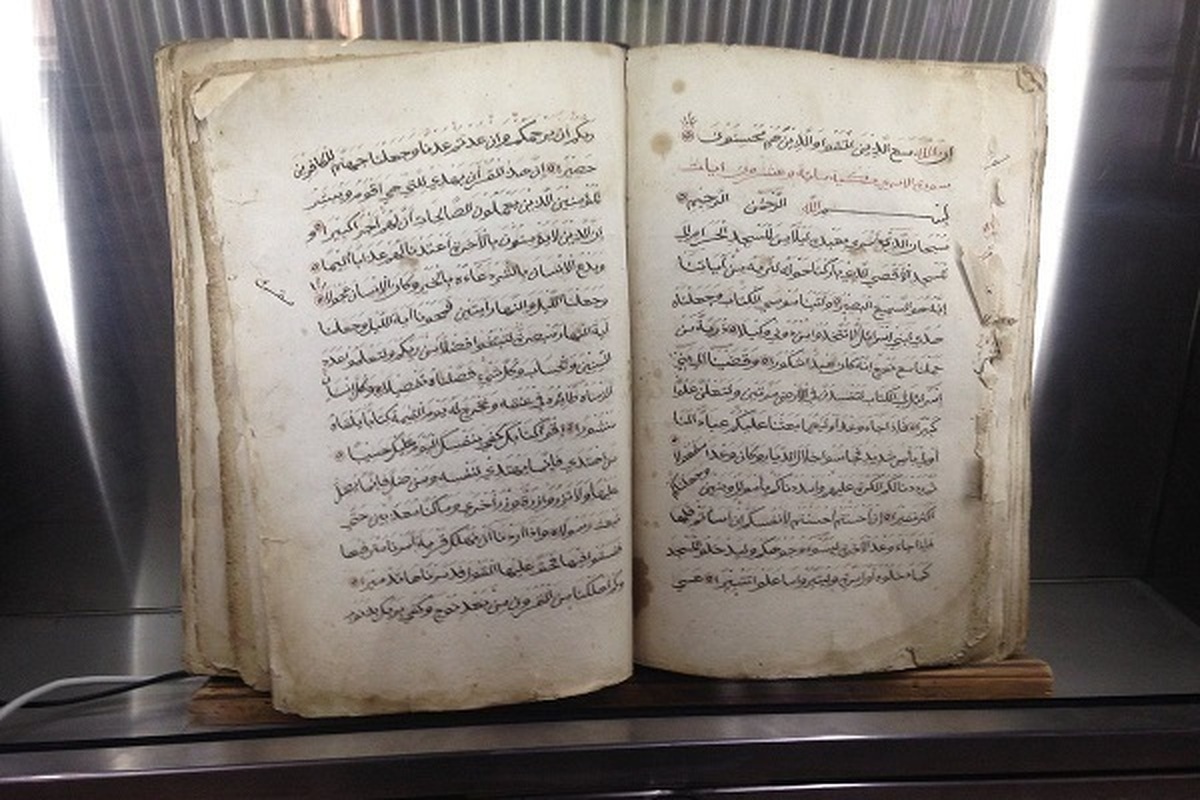 ان الله مع الذين اتقوا والذين هم محسنون
سورة الاسرى مكية مائة وعشر ايات
بسم الله الرحمن الرحيم
سبحان الذي اسرى بعبده ليلا من المسجد الحرام الى
المسجد الاقصى الذي باركنا حوله لنريه من آياتنا
انه هو السميع البصير وآتينا موسى الكتاب وجعلناه
هدى لبني اسرائل الا تتخذوا من دوني وكيلا ذرية من
حملنا مع نوح انه كان عبدا شكورا وقضينا الى بني
اسرائل في الكتاب لتفسدن في الارض مرتين ولتعلن علوا
كبيرا فاذا جاء وعد اوليهما بعثنا عليكم عبادا لنا
اولي باس شديد فجاسوا خلال الديار وكان وعدا مفعولا
ثم رددنا لكم الكرة عليهم وامددناكم باموال وبنين وجعلناكم
اكثر نفيرا ان احسنتم احسنتم لانفسكم وان اساتم فلها
فاذا جاء وعد الاخرة ليسوؤا وجوهكم وليدخلوا المسجد
كما دخلوه اول مرة وليتبروا ما علوا تتبيرا عسى
ربكم ان يرحمكم وان عدتم عدنا وجعلنا جهنم للكافرين
حصيرا ان هذا القرآن يهدي للتي هي اقوم ويبشر
المؤمنين الذين يعملون الصالحات ان لهم اجرا كبيرا و
ان الذين لا يؤمنون بالآخرة اعتدنا لهم عذابا اليما
ويدع الانسان بالشر دعاءه بالخير وكان الانسان عجولا
وجعلنا الليل والنهار آيتين فمحونا آية الليل وجعلنا
آية النهار مبصرة لتبتغوا فضلا من ربكم ولتعلموا عدد
السنين والحساب وكل شيء فصلناه تفصيلا وكل انسا
الزمناه طائره في عنقه ونخرج له يوم القيمة كتابا يلقاه
منشورا اقرا كتابك كفى بنفسك اليوم عليك حسيبا
من اهتدى فانما يهتدي لنفسه ومن ضل فانما يضل
عليها ولا تزر وازرة وزر اخرى وما كنا معذبين حتى
نبعث رسولا واذا اردنا ان نهلك قرية امرنا مترفيها
ففسقوا فيها فحق عليها القول فدمرناها تدميرا
وكم اهلكنا من القرون من بعد نوح وكفى بربك بذنوب